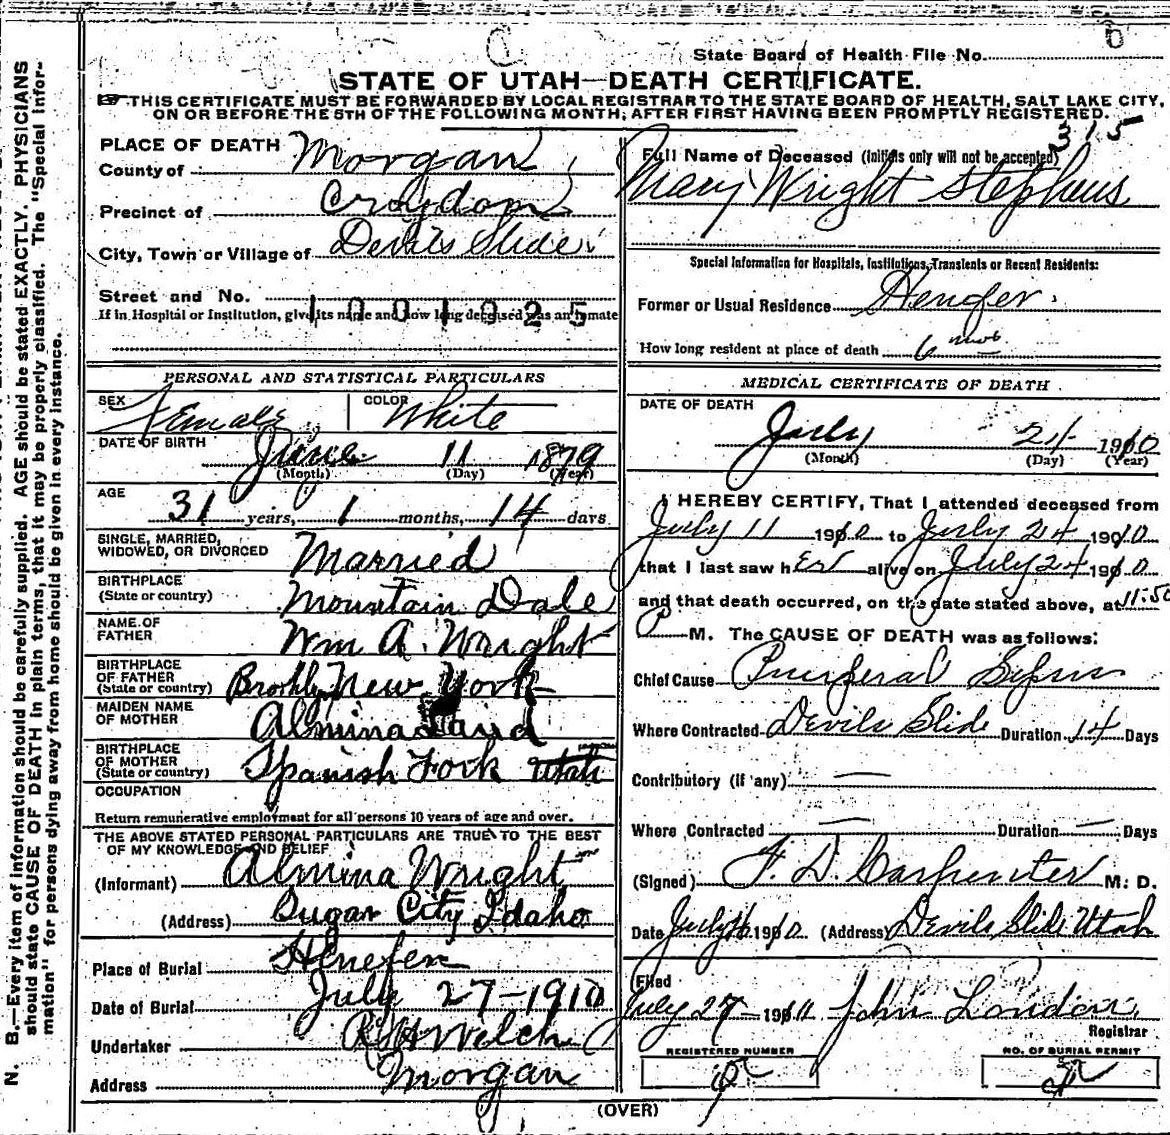 State Board of Health File No.
STATE OF UTAH—DEATH CERTIFICATE.
THIS CERTIFICATE MUST BE FORWARDED BY LOCAL REGISTRAR TO THE STATE BOARD OF HEALTH, SALT LAKE CITY,
ON OR BEFORE THE 5TH OF THE FOLLOWING MONTH; AFTER FIRST HAVING BEEN PROMPTLY REGISTERED.
315
PLACE OF DEATH
County of Morgan
Precinct of Croydon
City, Town or Village of Devils Slide
Street and No.
1001025
If in Hospital or Institution, give its name and how long deceased was an inmate
PERSONAL AND STATISTICAL PARTICULARS
SEX Female COLOR White
DATE OF BIRTH
June 11 1879
(Month) (Day) (Year)
AGE
31 years, 1 months, 14 days
SINGLE, MARRIED,
WIDOWED, OR DIVORCED Married
BIRTHPLACE
(State or country) Mountain Dale
NAME OF
FATHER Wm A. Wright
BIRTHPLACE
OF FATHER
(State or country) Brooklyn New York
MAIDEN NAME
OF MOTHER Almina
BIRTHPLACE
OF MOTHER
(State or country) Spanish Fork Utah
OCCUPATION
Return remunerative employment for all persons 10 years of age and over.
THE ABOVE STATED PERSONAL PARTICULARS ARE TRUE TO THE BEST
OF MY KNOWLEDGE AND BELIEF
(Informant) Almina Wright
(Address) Sugar City Idaho
Place of Burial Henefer
Date of Burial July 27-1910
Undertaker Welch
Address Morgan
Full Name of Deceased (Initials only will not be accepted)
Mary Wright Stephens
Special Information for Hospitals, Institutions, Transients or Recent Residents:
Former or Usual Residence Henefer
How long resident at place of death 6 mos
MEDICAL CERTIFICATE OF DEATH
DATE OF DEATH
July 24 1910
(Month) (Day) (Year)
I HEREBY CERTIFY, That I attended deceased from
July 11 1910 to July 24 1910
that I last saw her alive on July 24 1910
and that death occurred, on the date stated above, at 11:50
P M. The CAUSE OF DEATH was as follows:
Chief Cause Puerperal Sepsis
Where Contracted Devils Slide Duration 14 Days
Contributory (if any) —
Where Contracted — Duration — Days
(Signed) F. D. Carpenter M. D.
Date July 1910 (Address) Devils Slide Utah
Filed
July 27 — 1910 John London
Registrar
REGISTERED NUMBER
NO. OF BURIAL PERMIT
(OVER)
N. B.—Every item of information should be carefully supplied. AGE should be stated EXACTLY. PHYSICIANS
should state CAUSE OF DEATH in plain terms, that it may be properly classified. The "Special Infor-
mation" for persons dying away from home should be given in every instance.